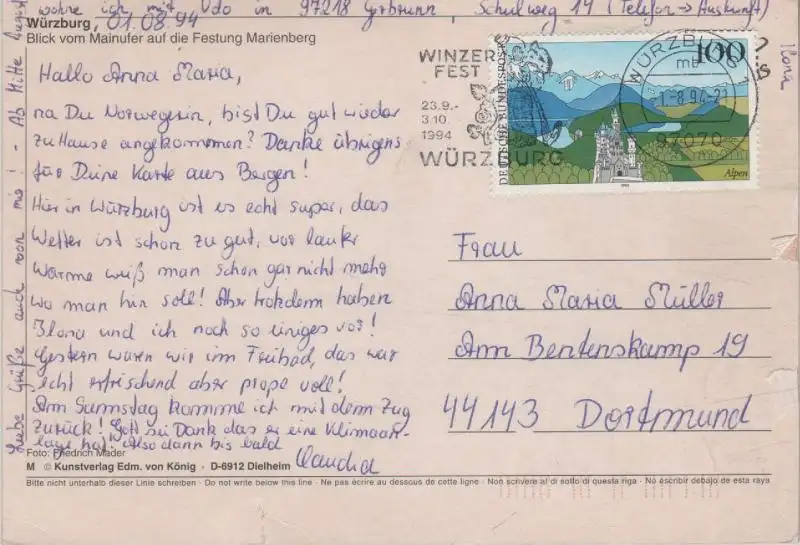 wohne ich mit Udo in 97218 Gerbrunn, Schulweg 14 (Telefon → Auskunft)
Würzburg, 01.08.94
Blick vom Mainufer auf die Festung Marienberg
Hallo Anna Maria,
na Du Norwegerin, bist Du gut wieder
zu Hause angekommen? Danke übrigens
für Deine Karte aus Bergen!
Hier in Würzburg ist es echt super, das
Wetter ist schon zu gut, vor lauter
Wärme weiß man schon gar nicht mehr
wo man hin soll! Aber trotzdem haben
Ilona und ich noch so einiges vor!
Gestern waren wir im Freibad, das war
echt erfrischend aber prope voll!
Am Samstag komme ich mit dem Zug
zurück! Gott sei Dank das er eine Klimaan-
lage hat! Also dann bis bald
Claudia
Liebe Grüße auch von mir! - Ab Mitte August
Ilona
Foto: Friedrich Mader
M © Kunstverlag Edm. von König · D-6912 Dielheim
Bitte nicht unterhalb dieser Linie schreiben · Do not write below this line · Ne pas écrire au dessous de cette ligne · Non scrivere al di sotto di questa riga · No escribir debajo de esta raya
WINZER
FEST
23.9.-
3.10.
1994
WÜRZBURG
DEUTSCHE BUNDESPOST
100
Alpen
WÜRZBURG
mb
-1.-8.94-21
97070
Frau
Anna Maria Müller
Am Bertenskamp 19
44143 Dortmund